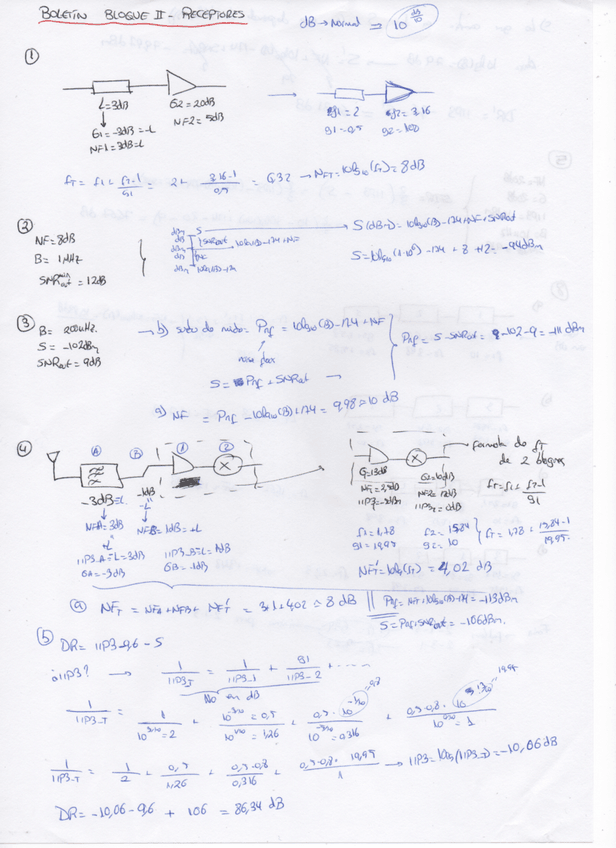 BOLETÍN BLOQUE II - RECEPTORES
dB → Normal = 10^(dB/10)
①
L=3dB
G2=20dB
NF2=5dB
G1=-3dB=-L
NF1=3dB=L
→
gf1=2
g1=0,5
gf2=3.16
g2=100
fT = f1 + (f2-1)/g1 = 2 + (3.16-1)/0,5 = 6.32 → NFT=10log10(fT)=8dB
②
NF=8dB
B=1MHz
SNRout min = 12dB
S → S(dBm)=10log10(B)-174+NF+SNRout
S=10log10(1·10^6)-174+8+12=-94dBm
③
B=200kHz
S=-102dBm
SNRout=9dB
→ b) suelo de ruido = Pnf = 10log10(B)-174+NF
noise floor
S = Pnf + SNRout →
Pnf = S-SNRout = -102-9=-111dBm
a) NF = Pnf-10log10(B)+174=9,98≈10 dB
④
A B 1 2
-3dB=L
-1dB
"-L"
NFA=3dB
NFB=1dB=+L
IIP3-A=L=3dB
GA=-3dB
IIP3-B=L=1dB
GB=-1dB
G=13dB
G2=10dB
NF2=12dB
formula de fT
de 2 bloques
fT=f1+(f2-1)/g1
f1=1,78
g1=19,95
f2=15,84
g2=10
fT=1,78+(15,84-1)/19,95
NFT'=10log(fT)=4,02 dB
ⓐ NFT = NFA+NFB+NFT' = 3+1+4.02 ≈ 8 dB
Pnf=NFT+10log10(B)-174=-113dBm
S=Pnf+SNRout=-106dBm.
ⓑ DR= IIP3-9,6-S
¿IIP3? → 1/IIP3_T = 1/IIP3-1 + g1/IIP3-2 + .....
No en dB
1/IIP3-T = 1/(10^(3/10)=2) + (10^(-3/10)=0,5)/(10^(1/10)=1,26) + (0,5·10^(-1/10))/(10^(-5/10)=0,316) + (0,5·0,8·10^(13/10))/(10^(0/10)=1)
=0,8
19,95
1/IIP3-T = 1/2 + 0,5/1,26 + (0,5·0,8)/0,316 + (0,5·0,8·19,95)/1 → IIP3=10log(IIP3-T)=-10,06dB
DR=-10,06-9,6 + 106 = 86,34 dB